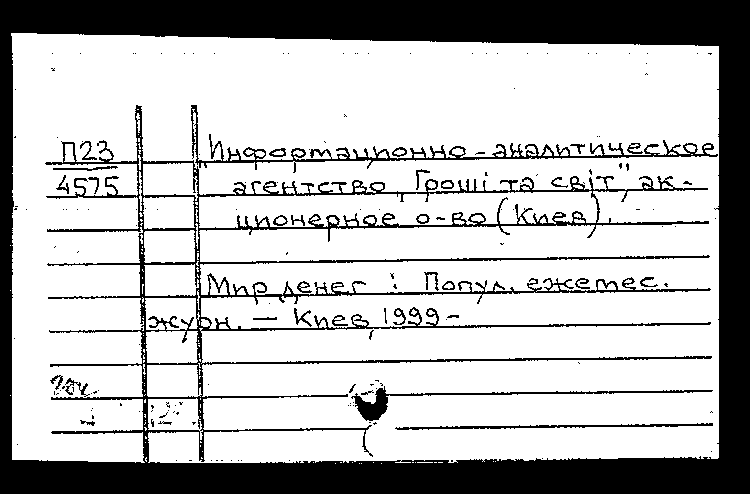 П23
4575
„Информационно-аналитическое
агентство „Гроші та світ", ак-
ционерное о-во (Киев).
Мир денег : Попул. ежемес.
журн. — Киев, 1999-